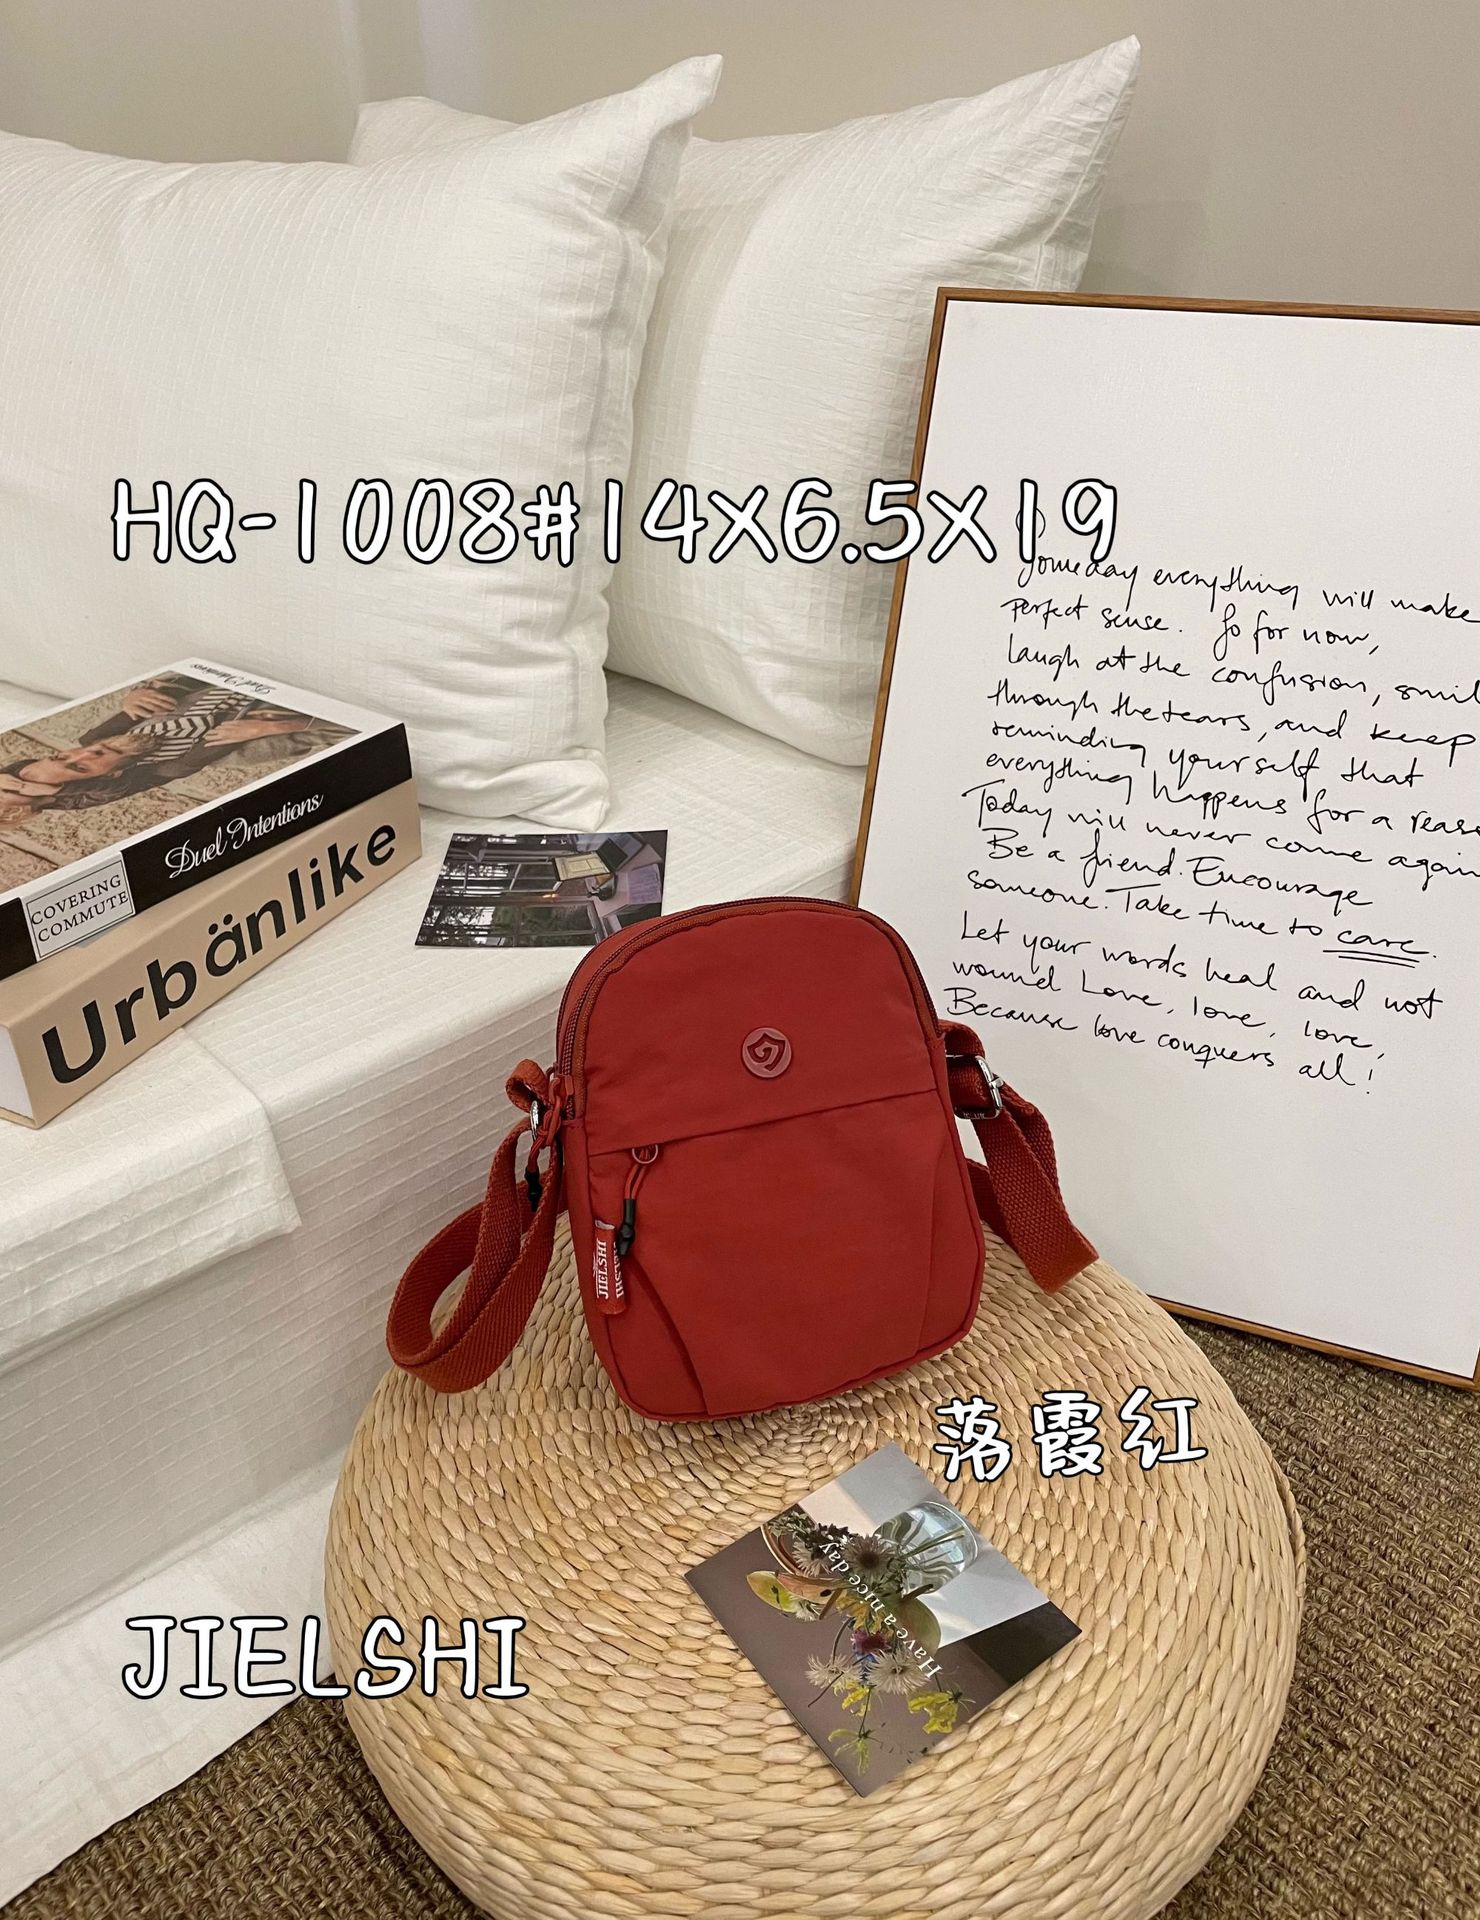 HQ-1008#14X6.5X19
Someday everything will make
perfect sense. So for now,
laugh at the confusion, smil
through the tears, and keep
reminding yourself that
everything happens for a reaso
Today will never come again
Be a friend. Encourage
someone. Take time to care.
Let your words heal and not
wound Love, love, love,
Because love conquers all!
Duel Intentions
COVERING
COMMUTE
Duel Intentions
Urbänlike
JIELSHI
JIELSHI
落霞红
Have a nice day
JIELSHI